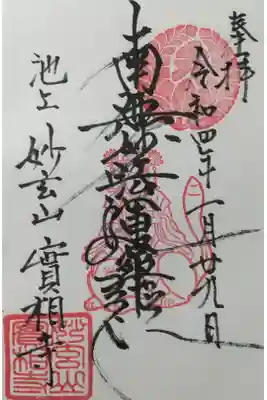 奉拝
令和四年一月廿九日
南無妙法蓮華経
池上 妙玄山 實相寺